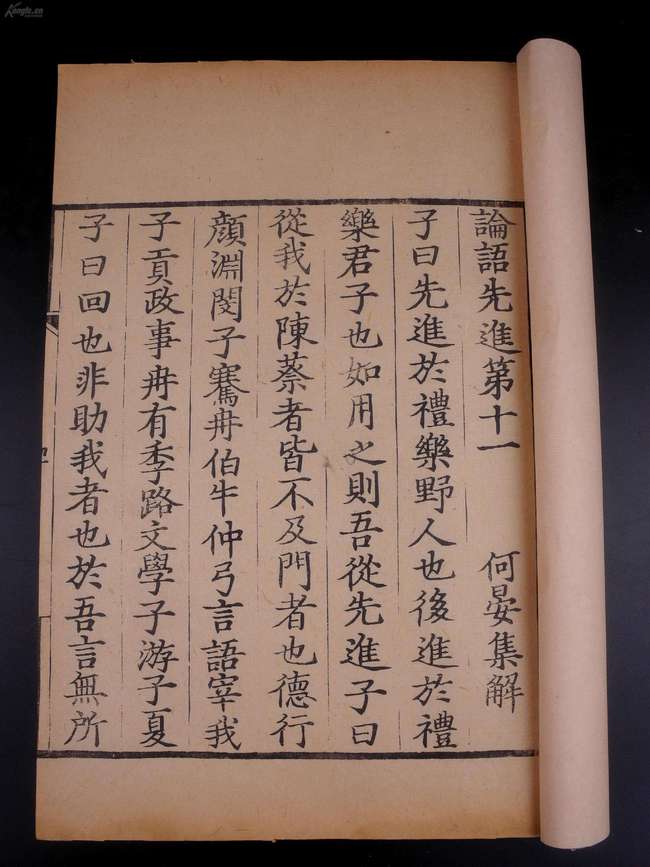 論語先進第十一 何晏集解
子曰先進於禮樂野人也後進於禮
樂君子也如用之則吾從先進子曰
從我於陳蔡者皆不及門者也德行
顏淵閔子騫冉伯牛仲弓言語宰我
子貢政事冉有季路文學子游子夏
子曰回也非助我者也於吾言無所
Kongfz.cn